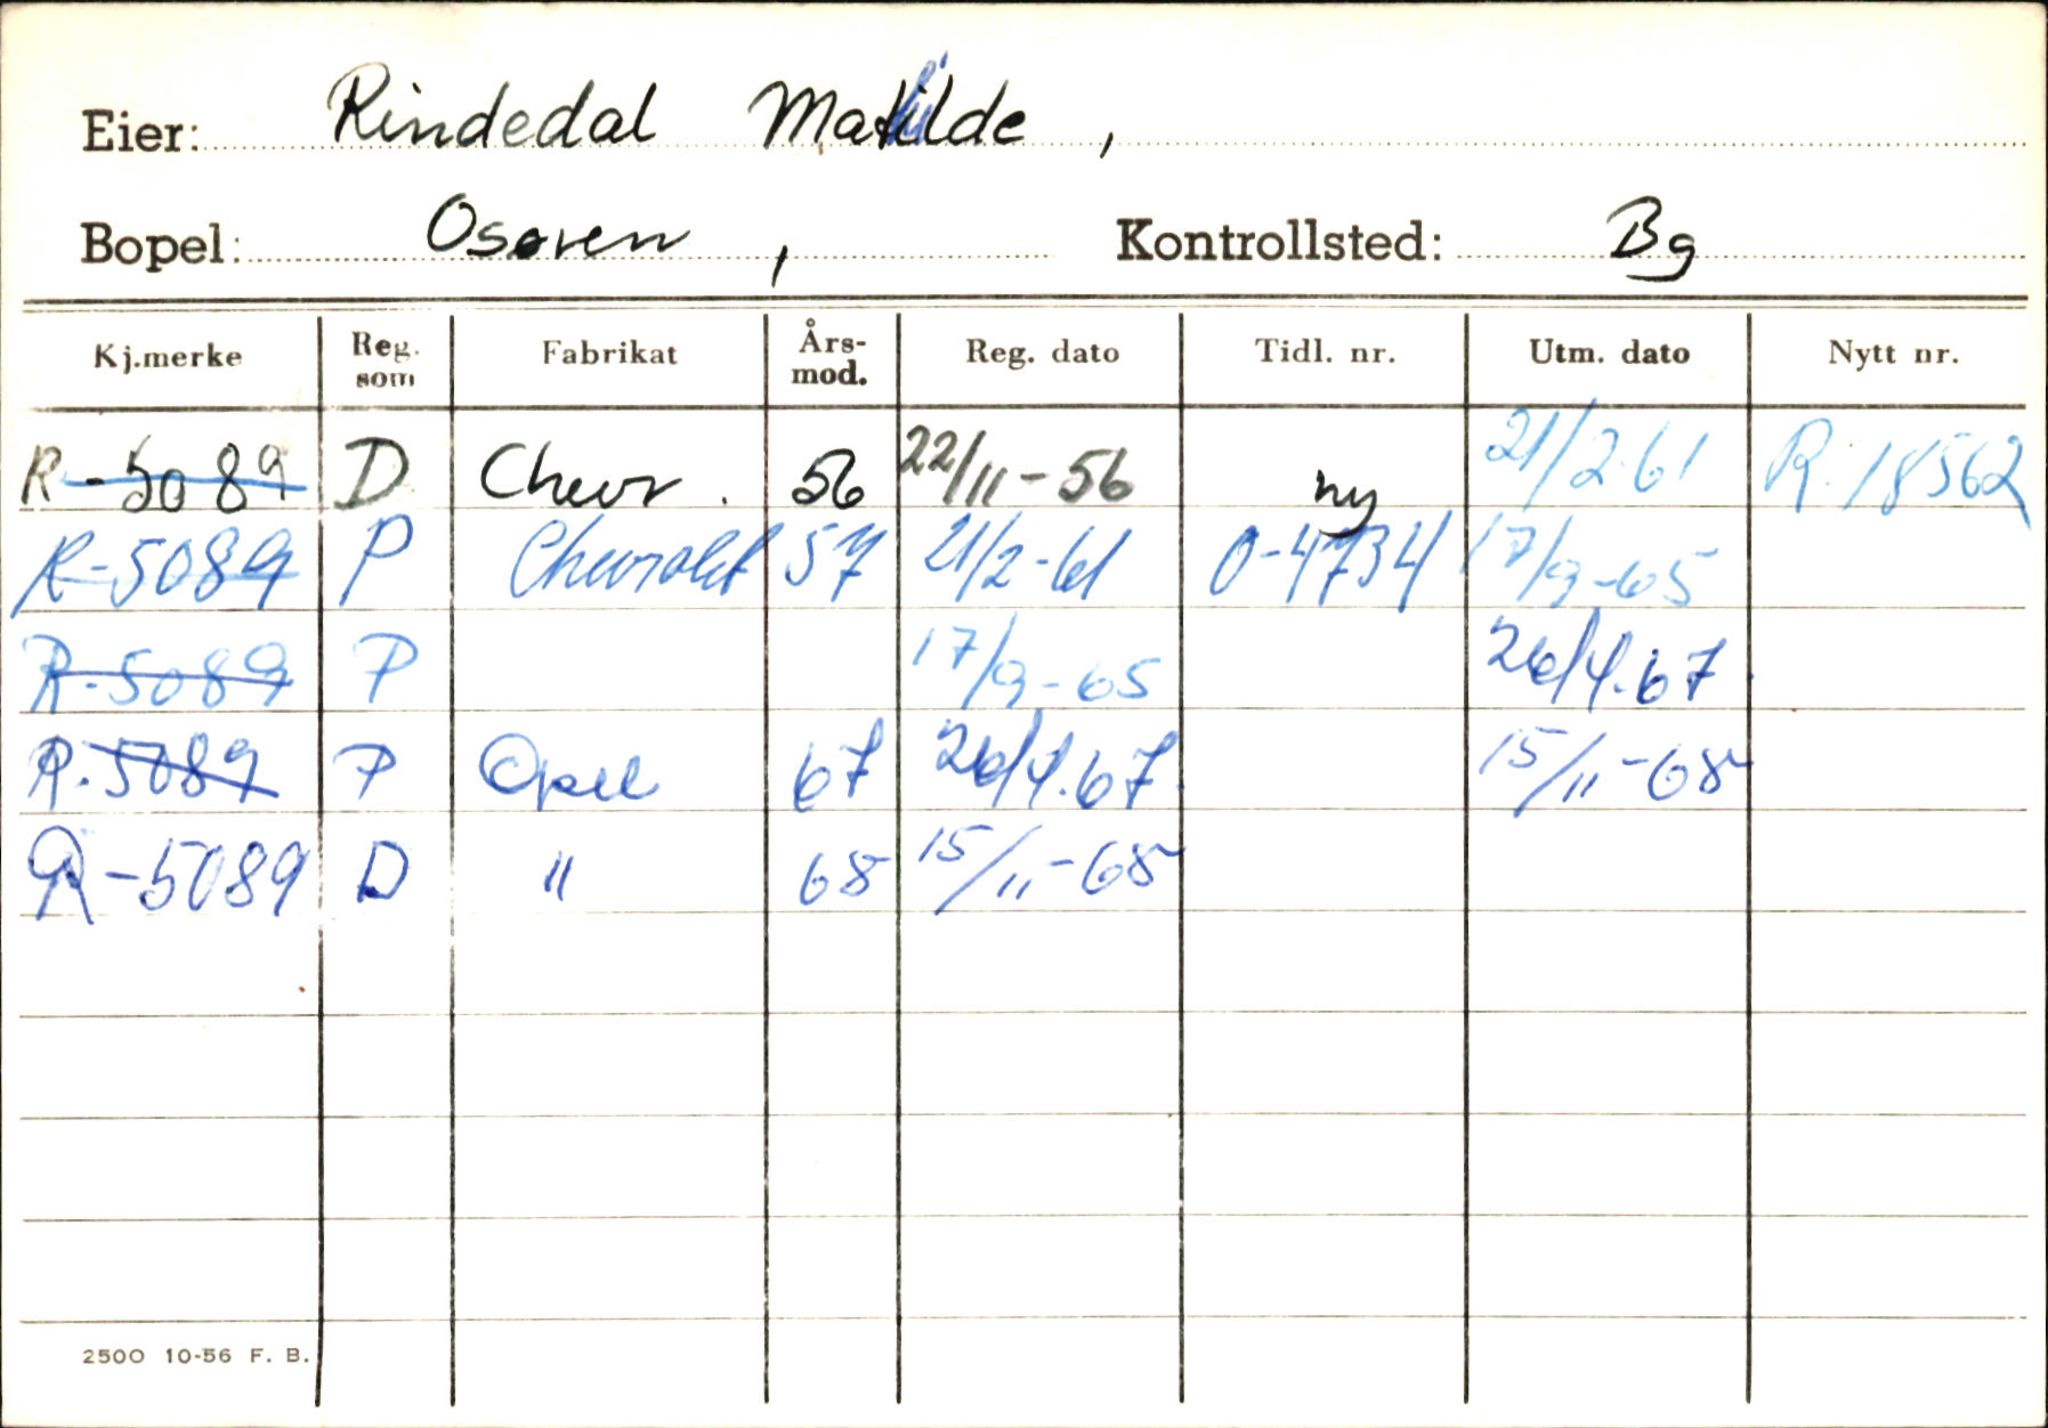 Eier: Rindedal Matilde,
Bopel: Osøren, Kontrollsted: Bg
Kj.merke Reg. som Fabrikat Års-mod. Reg. dato Tidl. nr. Utm. dato Nytt nr.
R-5089 D Chevr. 56 22/11-56 ny 21/2-61 R.18562
R-5089 P Chevrolet 57 21/2-61 O-4734 17/9-65
R-5089 P 17/9-65 26/4.67.
R.5089 P Opel 67 26/4.67. 15/11-68
R-5089 D " 68 15/11-68
2500 10-56 F. B.